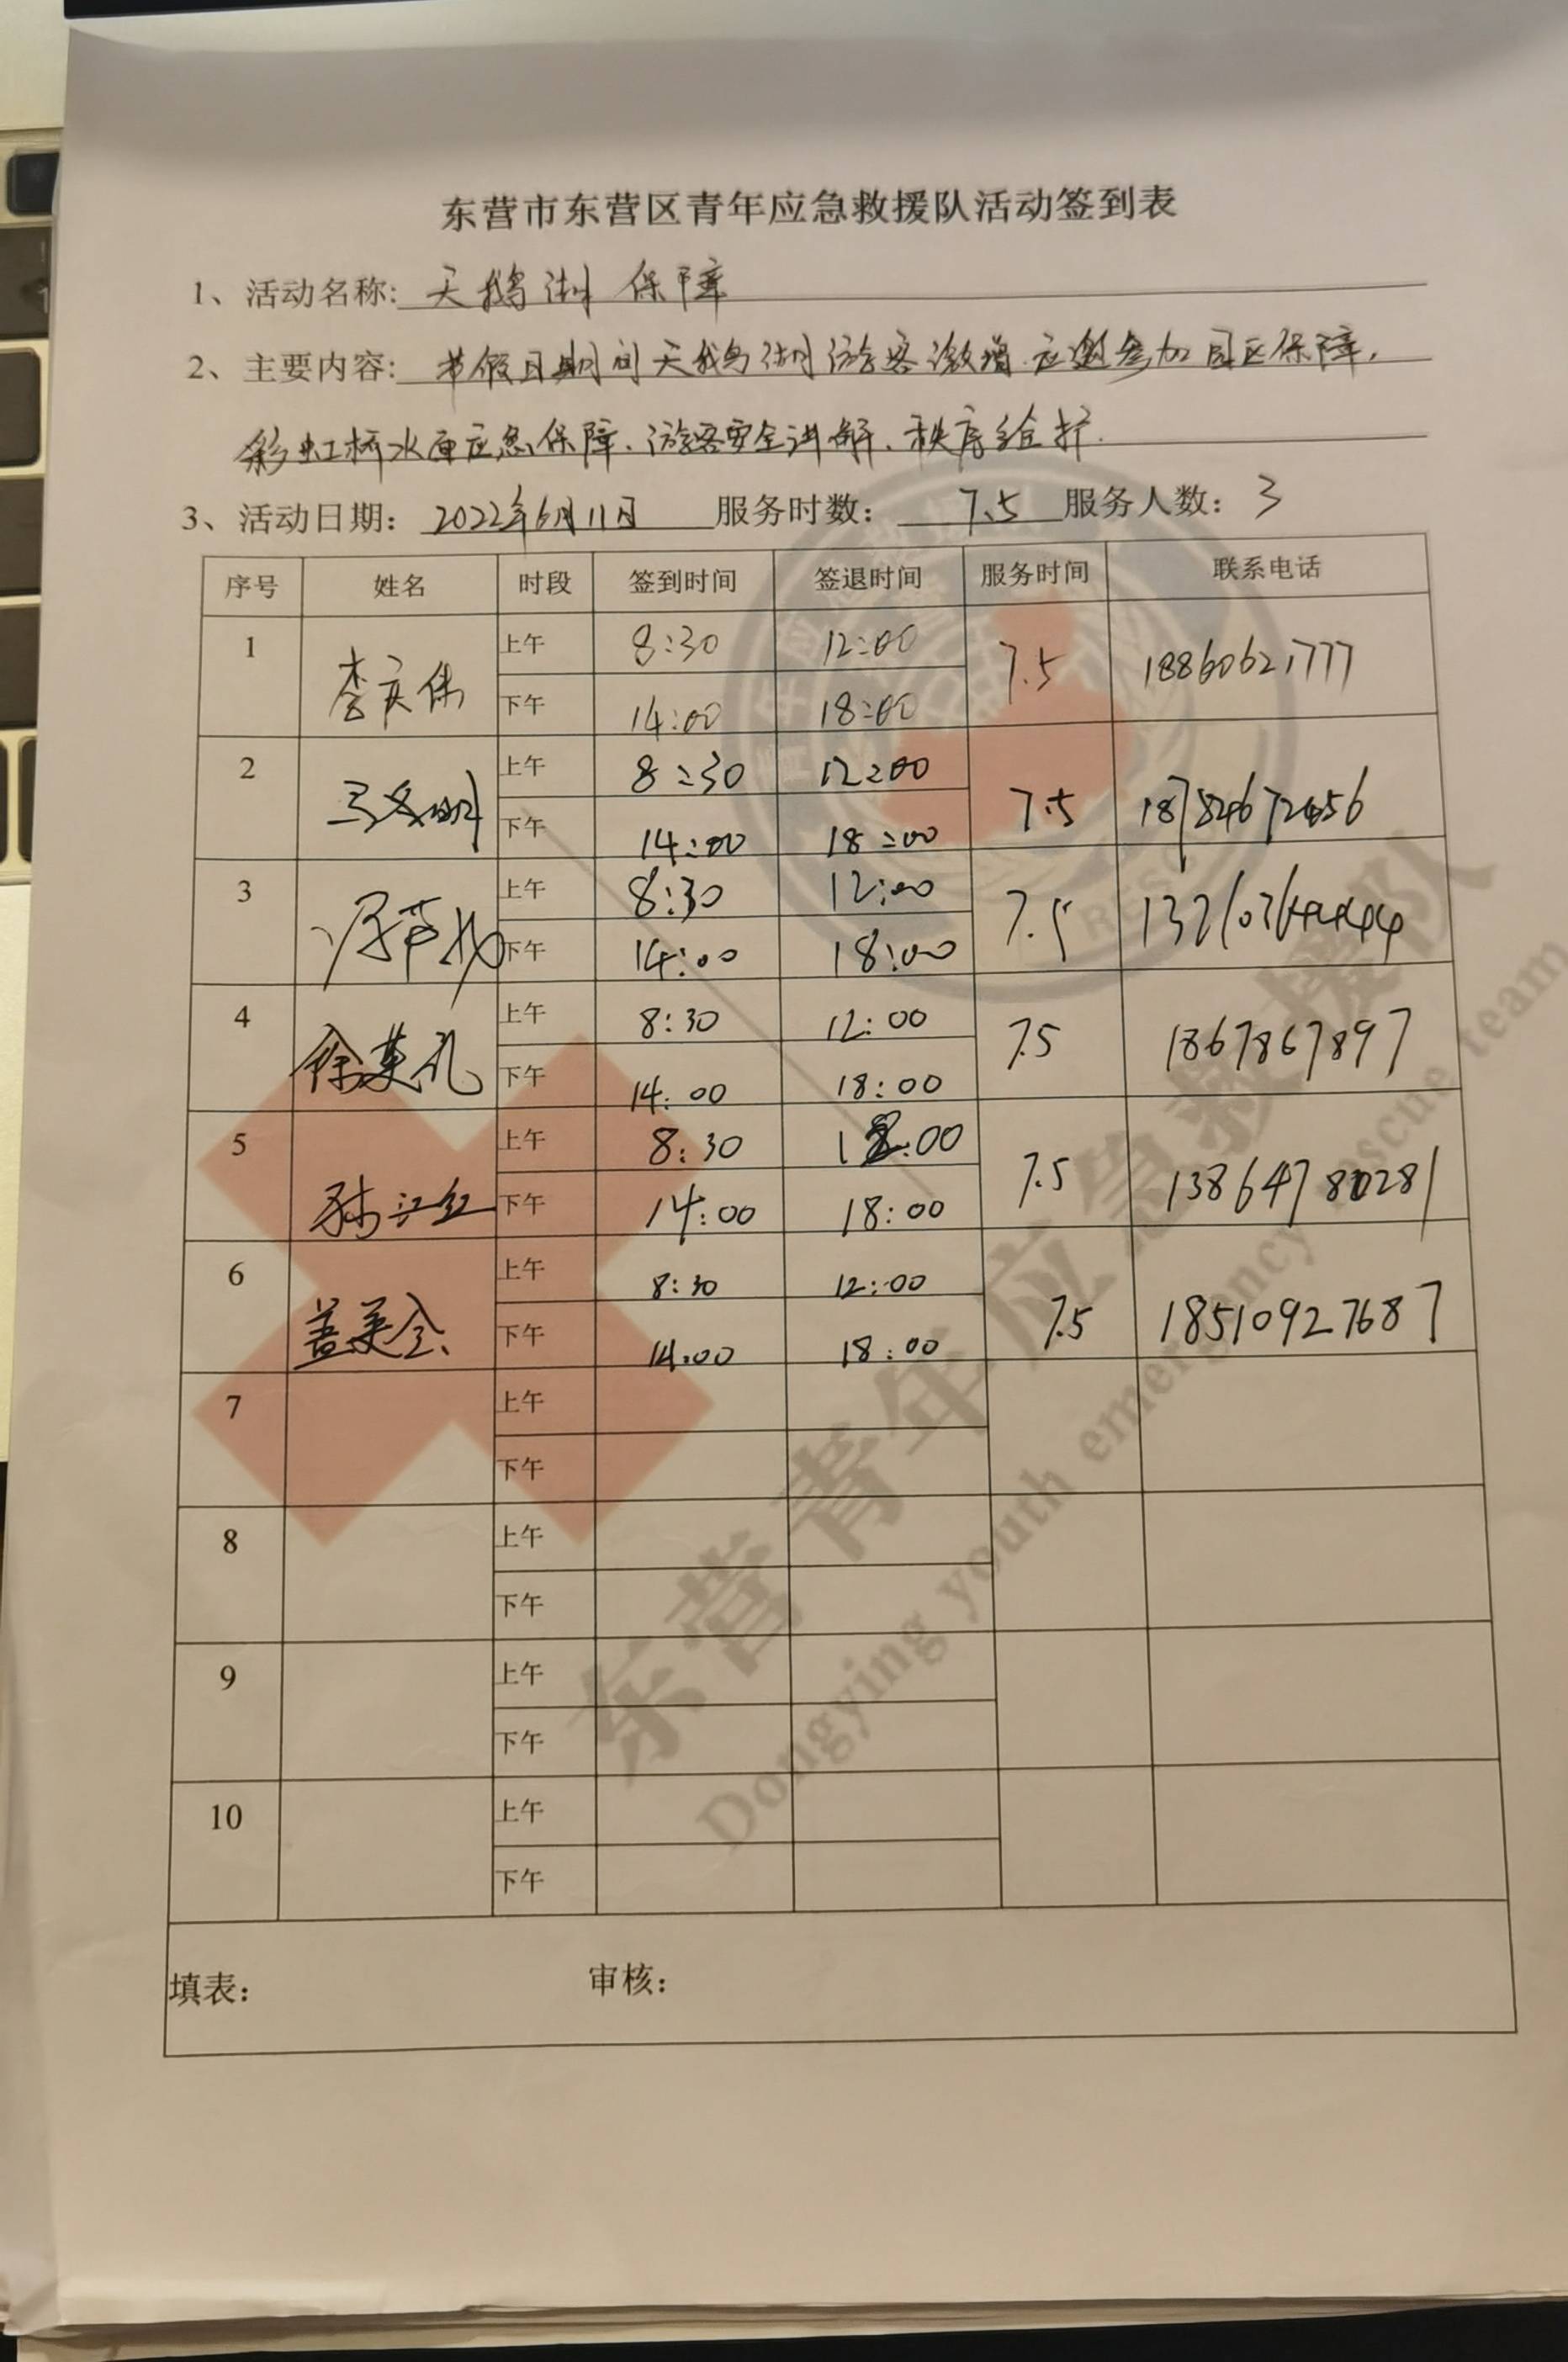 东营市东营区青年应急救援队活动签到表
1、活动名称: 天鹅湖 保障
2、主要内容: 节假日期间天鹅湖游客激增.应邀参加园区保障,
彩虹桥水面应急保障、游客安全讲解、秩序维护.
3、活动日期: 2022年6月11日 服务时数: 7.5 服务人数: 3
序号 姓名 时段 签到时间 签退时间 服务时间 联系电话
1 李庆伟 上午 8:30 12:00 7.5 18860621777
下午 14:00 18:00
2 上午 8:30 12:00 7.5
下午 14:00 18:00
3 上午 8:30 12:00 7.5
下午 14:00 18:00
4 徐英孔 上午 8:30 12:00 7.5 1867867897
下午 14:00 18:00
5 孙江红 上午 8:30 12:00 7.5 13864780281
下午 14:00 18:00
6 盖英全 上午 8:30 12:00 7.5 18510927687
下午 14:00 18:00
7 上午
下午
8 上午
下午
9 上午
下午
10 上午
下午
填表: 审核:
东营青年应急救援队
Dongying youth emergency rescue team